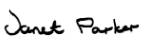 Janet Parker